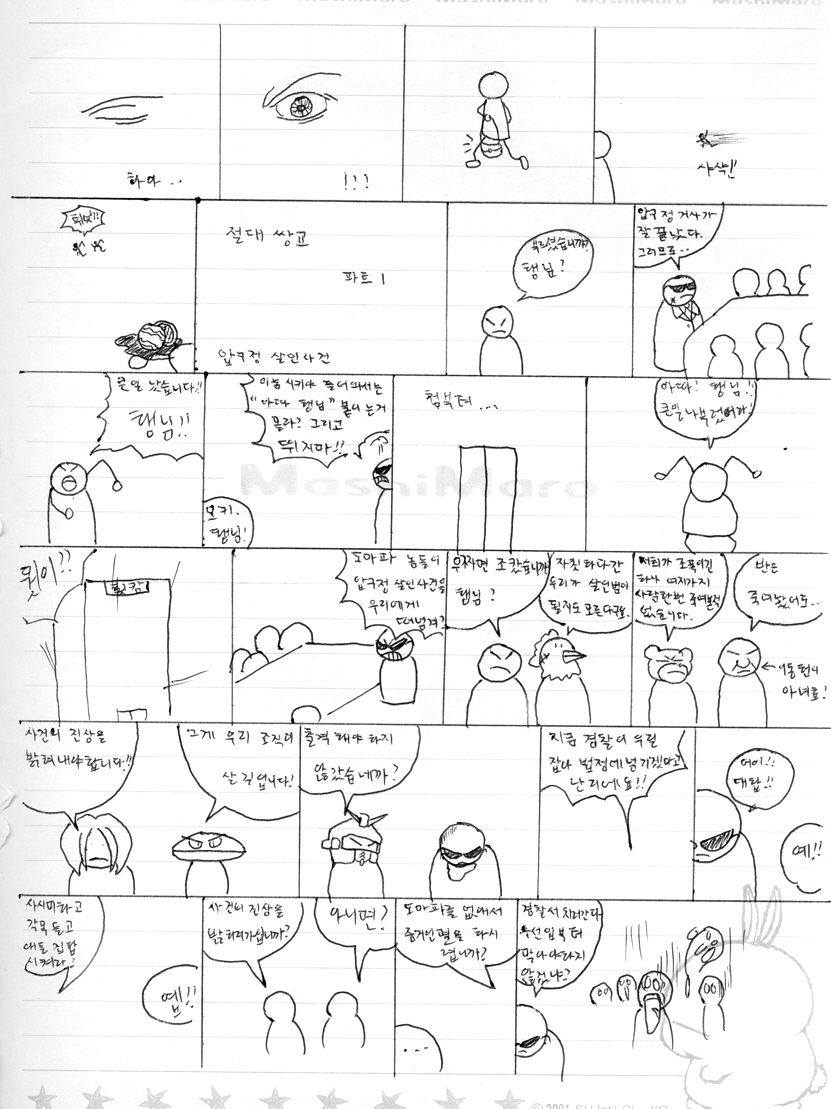 MashiMaro
하아..
!!!
샤샥!!
퍼벅!!
절대 쌍교
파트 1
압구정 살인사건
부르셨습니까?
탱님?
압구정 거사가
잘 끝났다.
그러므로..
큰일 났습니다!!
탱님!!
이놈 시키야 들어와서는
"아따 탱님" 붙이는거
몰라? 그리고
뛰지마!!
오키.
탱님!
첨부터...
아따! 탱님!!
큰일나부렀어라!
뭣이??
도마파 놈들이
압구정 살인사건을
우리에게
떠넘겨?
우짜면 조캈습니까
탱님?
자칫하다간
우리가 살인범이
될지도 모른다구요.
저희가 조폭이긴
하나 여지가지
사람한번 죽여본적
없습니다.
반은
죽여놨어도..
←이동원이
아녀유!
사건의 진상을
밝혀내야합니다!!
그게 우리 조직이
살 길입니다!
출격해야하지
않갔습네까?
지금 경찰이 우릴
잡아 법정에넘기겠다고
난리에요!!
어이!!
대탑!!
예!!
사시미하고
각목 들고
애들 집합
시켜라!
옙!!
사건의 진상을
밝히러가십니까?
아니면?
도마파를 없애서
증거인멸을 하시
렵니까?
...
경찰서 치러간다
우선 입부터
막아야하지
않겠냐?
MashiMaro
© 2001